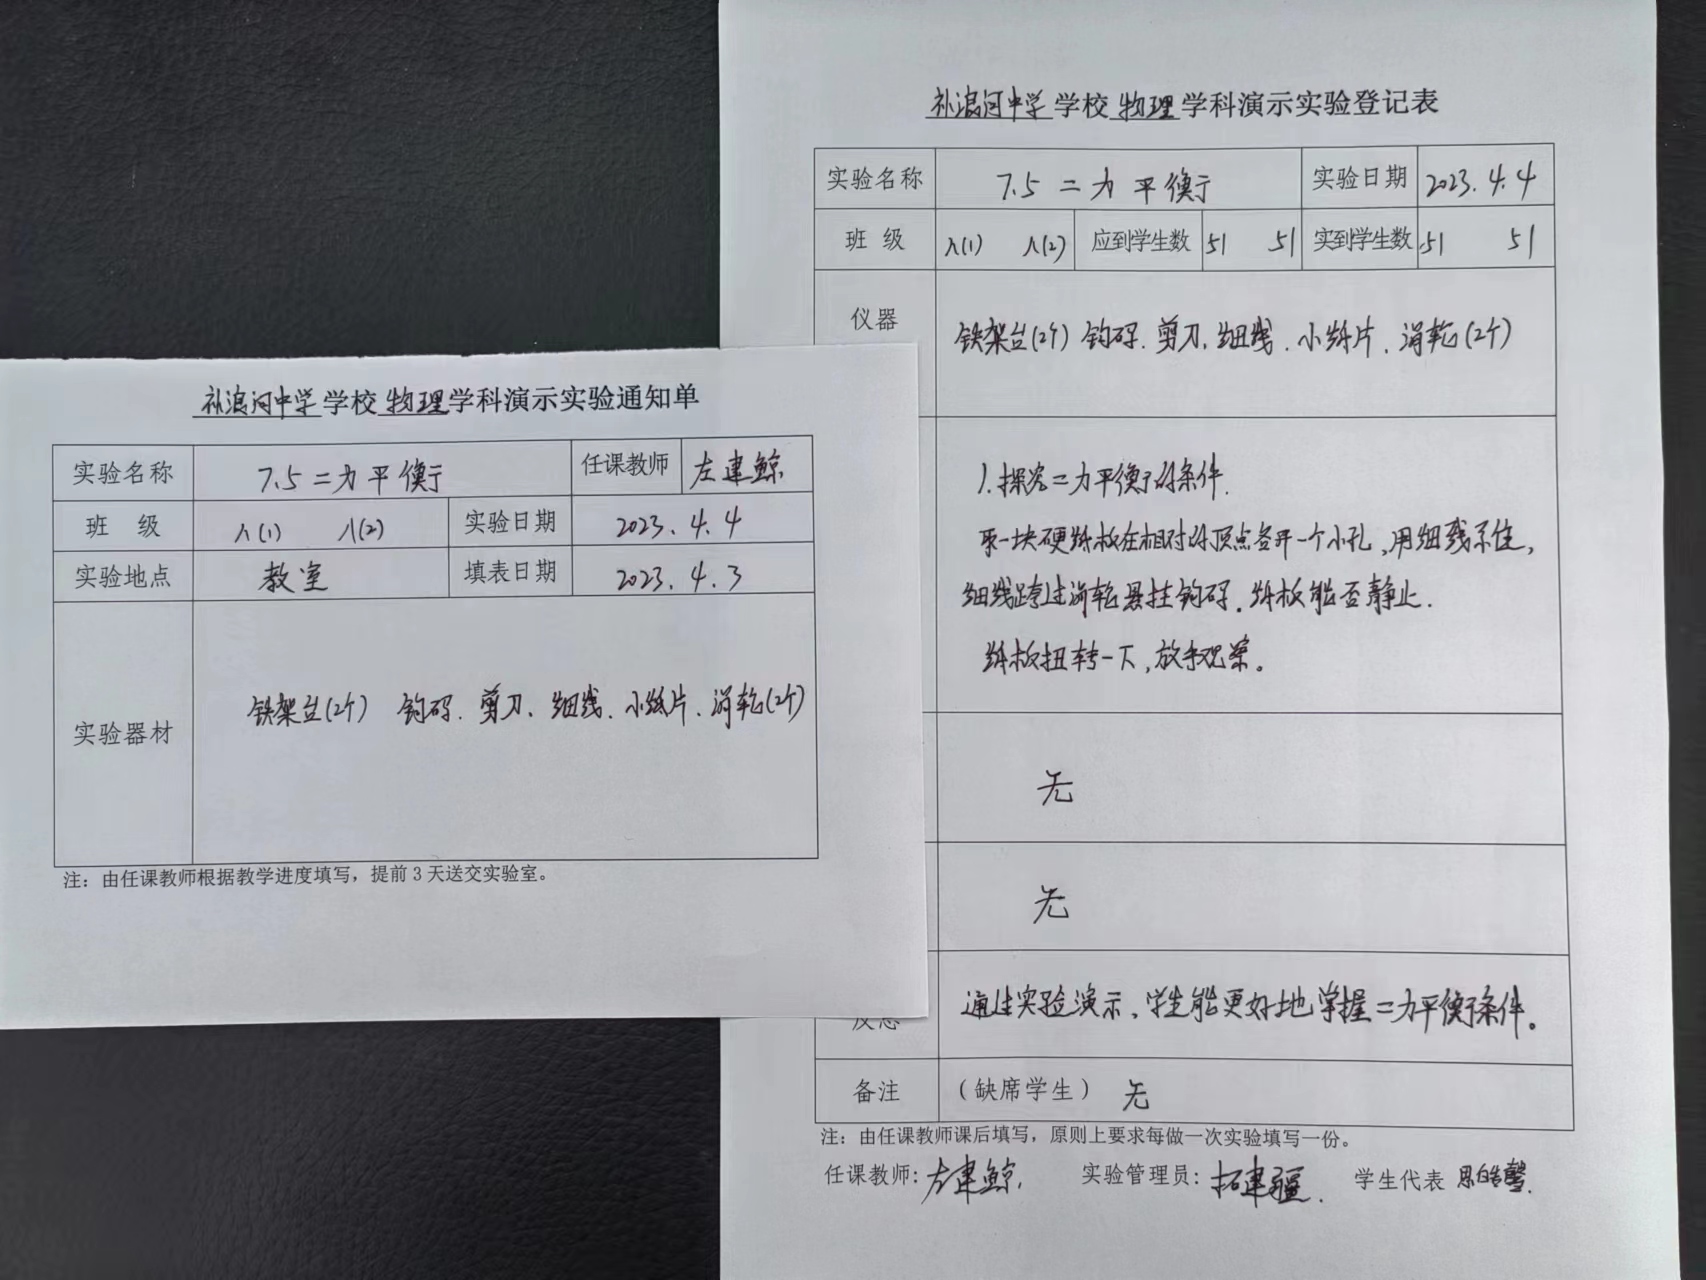 补浪河中学学校物理学科演示实验通知单
实验名称 7.5 二力平衡 任课教师 左建鲸
班 级 八(1) 八(2) 实验日期 2023.4.4
实验地点 教室 填表日期 2023.4.3
实验器材 铁架台(2个) 钩码、剪刀、细线、小纸片、滑轮(2个)
注：由任课教师根据教学进度填写，提前3天送交实验室。
补浪河中学学校物理学科演示实验登记表
实验名称 7.5 二力平衡 实验日期 2023.4.4
班 级 八(1) 八(2) 应到学生数 51 51 实到学生数 51 51
仪器 铁架台(2个) 钩码、剪刀、细线、小纸片、滑轮(2个)
1.探究二力平衡的条件.
取一块硬纸板在相对的顶点各开一个小孔,用细线系住,
细线跨过滑轮悬挂钩码.纸板能否静止.
纸板扭转一下,放手观察。
无
无
通过实验演示、学生能更好地掌握二力平衡条件。
备注 （缺席学生） 无
注：由任课教师课后填写，原则上要求每做一次实验填写一份。
任课教师：左建鲸. 实验管理员：拓建疆. 学生代表